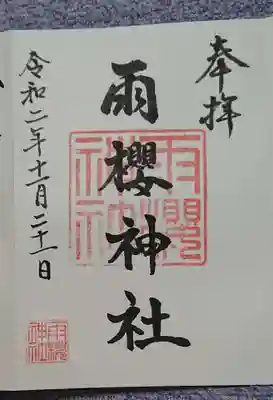 奉拝
雨櫻神社
令和二年十一月二十一日
雨櫻神社